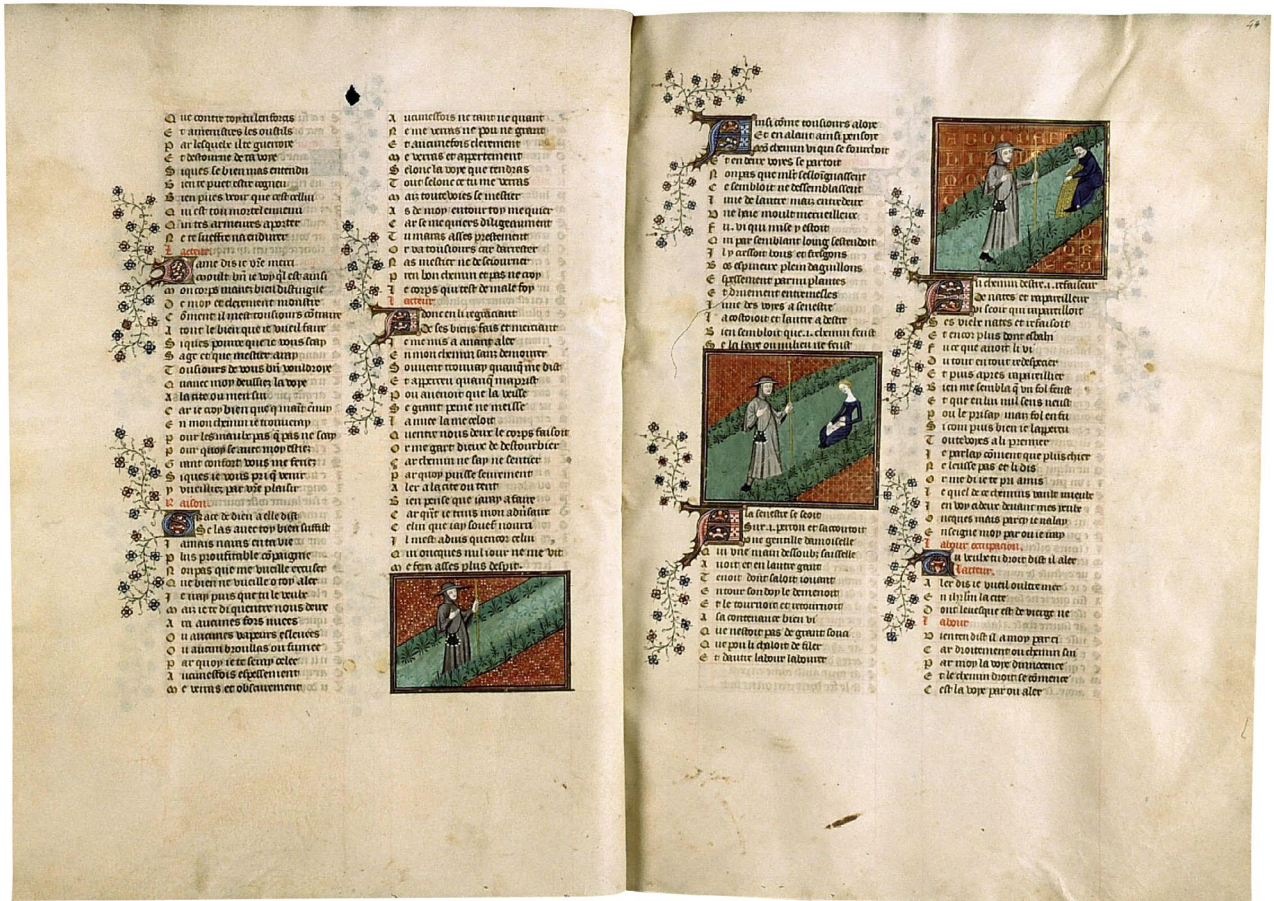 Que contre toy tu lenforcas
Et amenistres les oustils
Par lesquelx il te guerroie
Et destourne de ta voye
Siques se bien mas entendu
Bien te puet estre cogneu
Bien pues veoir que cest cellui
Qui est ton mortel ennemi
Quintes armeures aporter
Ne te lueffre na endurer
Lacteur
Dame dis ie vr̄e merci
moult bn̄ ie voy ql est ainsi
Mon corps mauez bien distingue
De moy et clerement monstre
Cōment il mest tousiours contraire
A tout le bien que ie vueil faire
Siques pource que ie vous scay
Sage et que mestier auray
Tousiours de vous bn̄ vouldroye
Quauec moy deussiez la voye
A la cite ou men sui
Car ie croy bien que maīt ēnuy
En mon chemin ie trouueray
Pour les maulx pas q̄ pas ne scay
Pour quoy se auec moy estiez
Grant confort vous me feriez
Siques ie vous pri q̄ venir
Y vueilliez par vr̄e plaisir
Raison
Grace de dieu a elle dist
Se las auec toy bien suffist
Iamais nauras en ta vie
Plus prouffitable cōpaignie
Non pas que me vueille excuser
Que bien ne vueille o toy aler
Ie iray puis que tu le veulz
Mais ie te di quentre nous deux
Ara aucunes fois nuees
Ou aucunes vapeurs esleuees
Ou aucun broullas ou fumee
Par quoy ie te seray celee
Aucunesfois espessement
Me verras et obscurement
Aucunesfois ne tant ne quant
Ne me verras ne pou ne grant
Et aucunesfois clerement
Me verras et appertement
Selonc la voye que tendras
Tout selonc ce tu me verras
Mais toutevoies se mestier
As de moy entour toy me quier
Car se me quiers diligeaument
Tu maras asses prestement
Or va tousiours car darrester
Nas mestier ne de seiourner
Pren bon chemin et pas ne croy
Le corps qui test de male foy
Lacteur
Adonc en li regraciant
De ses biens fais et merciant
Ie me mis a auant aler
En mon chemin sans demourer
Souuent trouuay quanq̄ me dist
Et apperceu quanq̄ maprist
Pou auenoit que la veisse
Se grant peine ne meisse
Iamice la me celoit
Quentre nous deux le corps faisoit
Or me gart dieux de destourbier
Car chemin ne say ne sentier
Par quoy puisse seurement
Aler a la cite ou tent
Bien pense que iaray a faire
Car qn̄t ie truis mon aduersaire
Celui que iay souef nourri
Il mest aduis quencor celui
Qui oncques nul iour ne me vit
Me fera asses plus despit
Ainsi cōme tousiours aloye
Et en alant ainsi pensoye
Mon chemin vi qui se fourchoit
Et en deux voyes se partoit
Non pas que mlt̄ sesloignassent
Ce sembloit ne dessemblassent
Lune de lautre mais entre deux
Vne haie moult merueilleux
Fu vi qui mise y estoit
Qui par semblant loing sestendoit
Il y cressoit bous et fregons
Bos espineux plein daguillons
Espessement par mi plantes
Et druement entremesles
Lune des voyes a senestre
La costoioit et lautre a destre
Bien sembloit que .i. chemin feust
Se la haye ou milieu ne feust
A la senestre se seoit
Sur .i. perron et sacoutoit
Vne gentille damoiselle
Qui vne main dessoubz saisselle
Auoit et en lautre gant
Tenoit dont saloit iouant
Entour son doy le demenoit
Et le tournoit et retournoit
A sa contenance bien vi
Que nestoit pas de grant souci
Que pou li chaloit de filer
Et dautre labour labourer
Au chemin destre .i. refaiseur
De nates et rapareilleur
Y seoit qui rapareilloit
Ses vielz nates et refaisoit
Et encor plus dont esbahi
Fu ce que auoit li vi
Ou tout entour redespecier
Et puis apres rapareillier
Bien me sembla q̄ vn fol feust
Et que en lui nul sens neust
Pou le prisay mais fol en fu
Si com puis bien lapperceu
Toutevoyes a li premier
Ie parlay cōment que plus chier
Neleusse pas et li dis
Or me di ie te pri amis
Lequel de ce chemins vault mieulz
Enuoy a deux deuant mes yeulx
Oncques mais par cy ne alay
Enseigne moy par ou ie iray
Labour occupacion
Ou veulz tu droit dist il aler
Lacteur
Aler dis ie vueil oultre mer
En ihr̄lm la cite
Dont leuesque est de vierge ne
Labour
Vien ten dist il a moy par ci
Car droitement ou chemin sui
Par moy la voye dinnocence
Et le chemin droit se cōmence
Cest la voye par ou aler